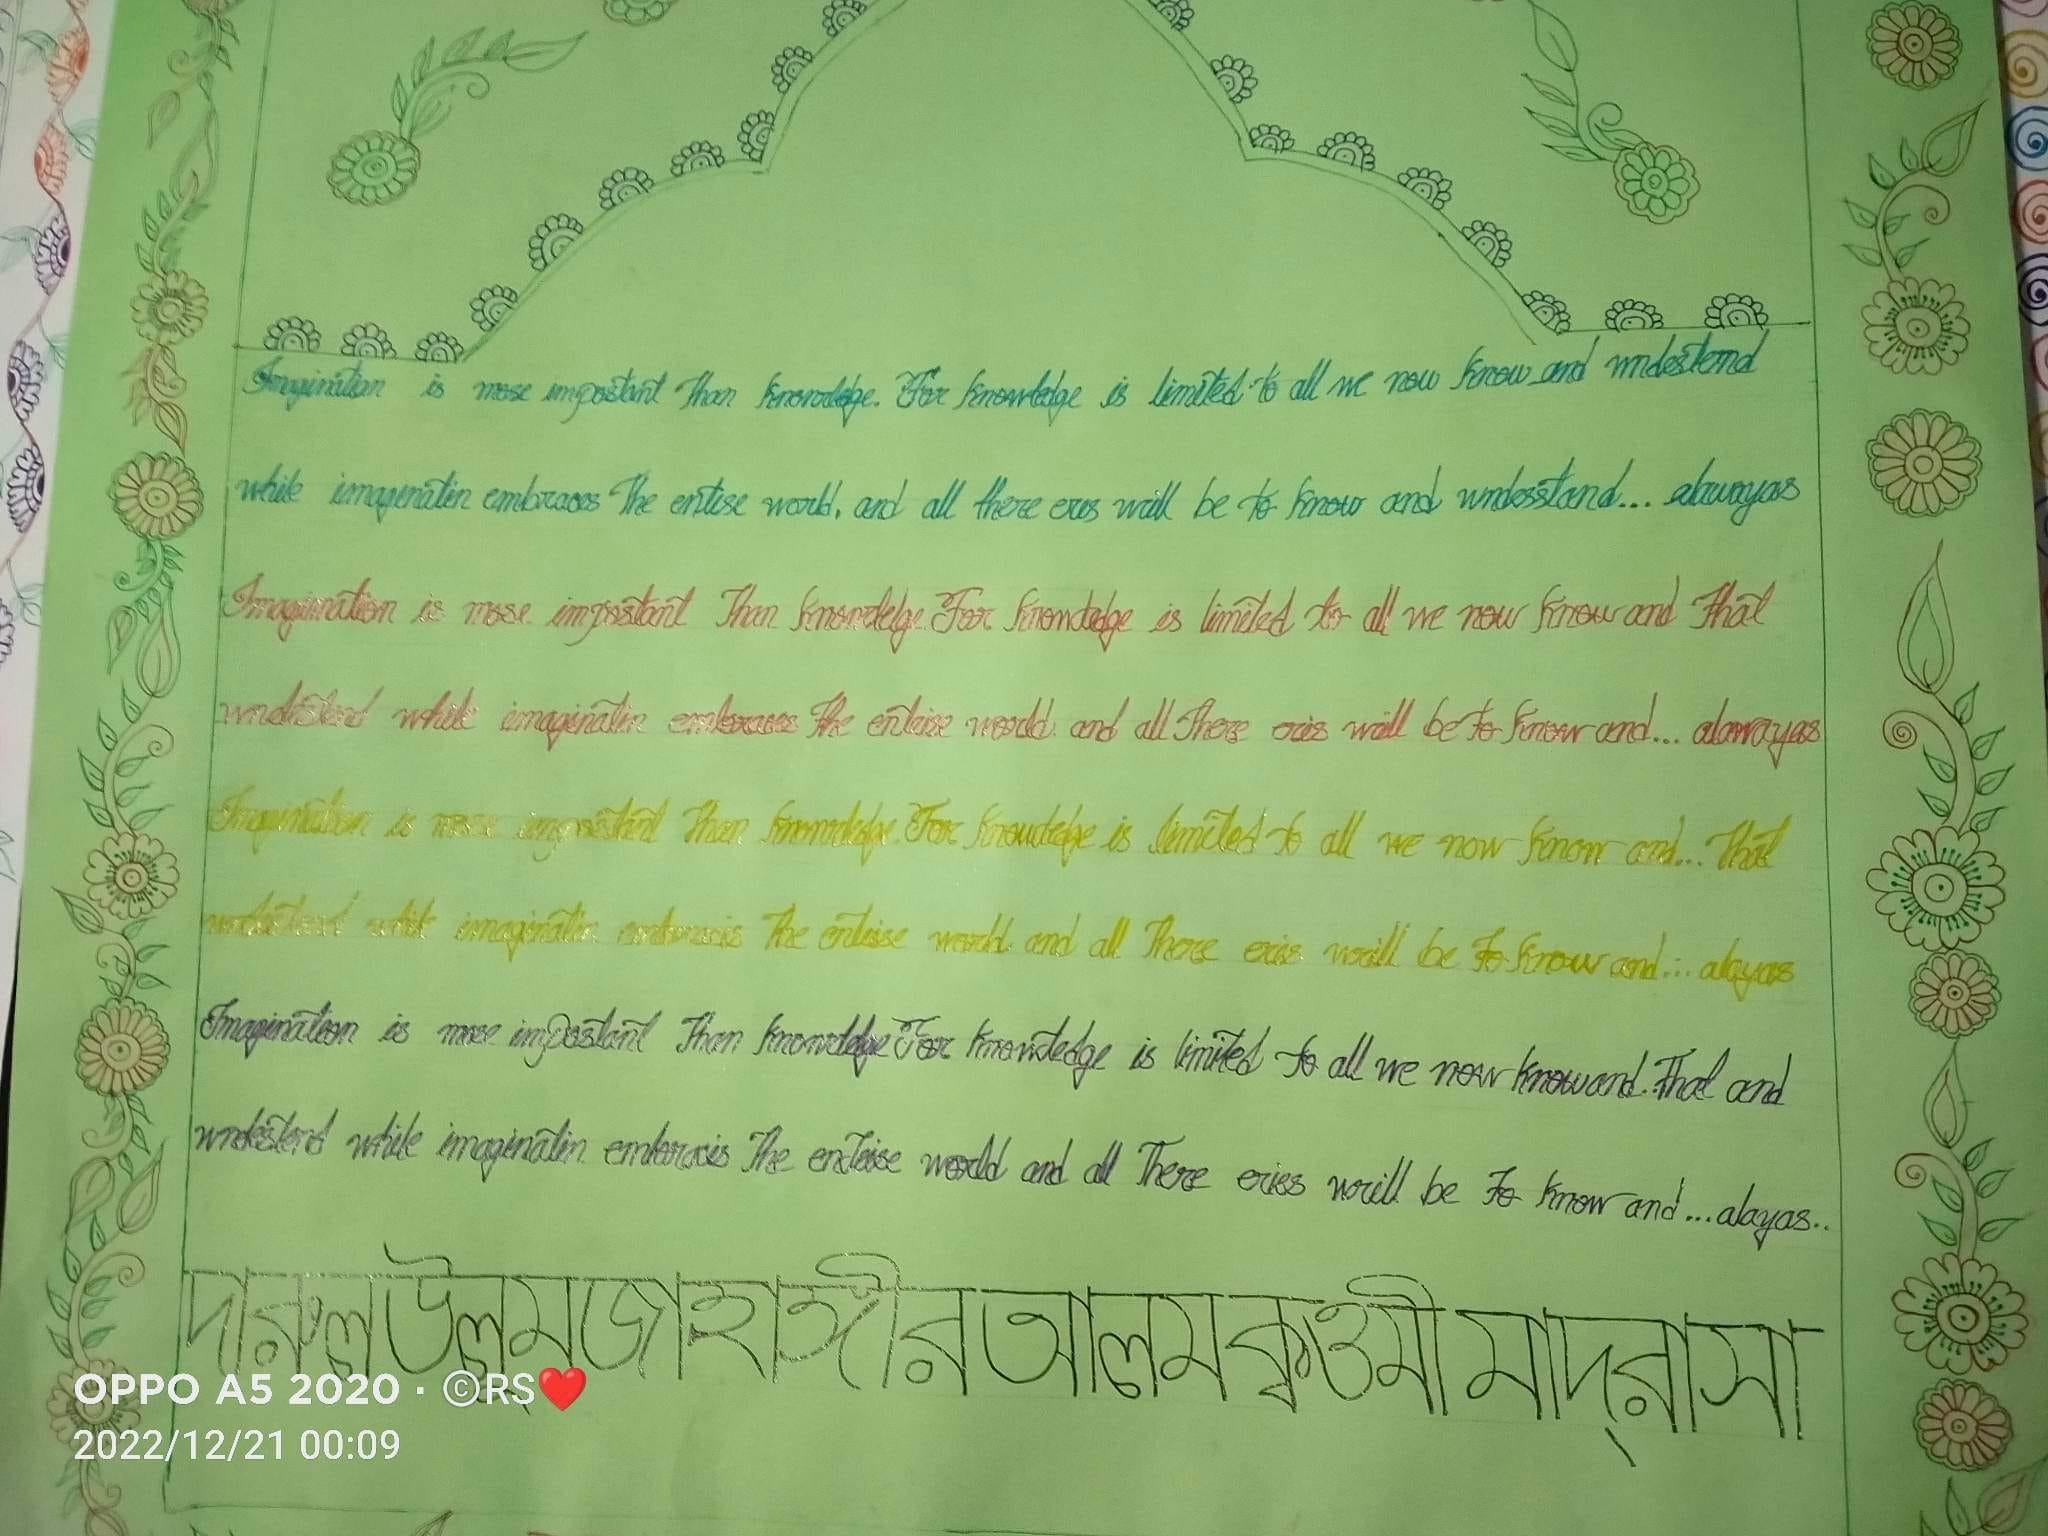 Imagination is more important Than knowledge. For knowledge is limited to all we now know and wndestend
while imaginatin embraces The entise world, and all there eris will be to know and wndesstand... alawayas
Imagination is more important Than knowledge For knowledge is limited to all we now know and That
wndistend while imaginatin embraces The enteise world and all There eris will be to know and... alawayas
Imagination is more important Than knowledge. For knowledge is limited to all we now know and... That
wndestend while imaginatin embracis The enteise world and all There eris will be To know and... alayas
Imagination is more important Than knowledge For knowledge is limited to all we now know and. That and
wndestend while imaginatin embracis The enteise world and all There eries will be To know and... alayas..
দারুল উলুম জাহাঙ্গীর আলম ক্বওমী মাদ্রাসা
OPPO A5 2020 · ©RS❤️
2022/12/21 00:09